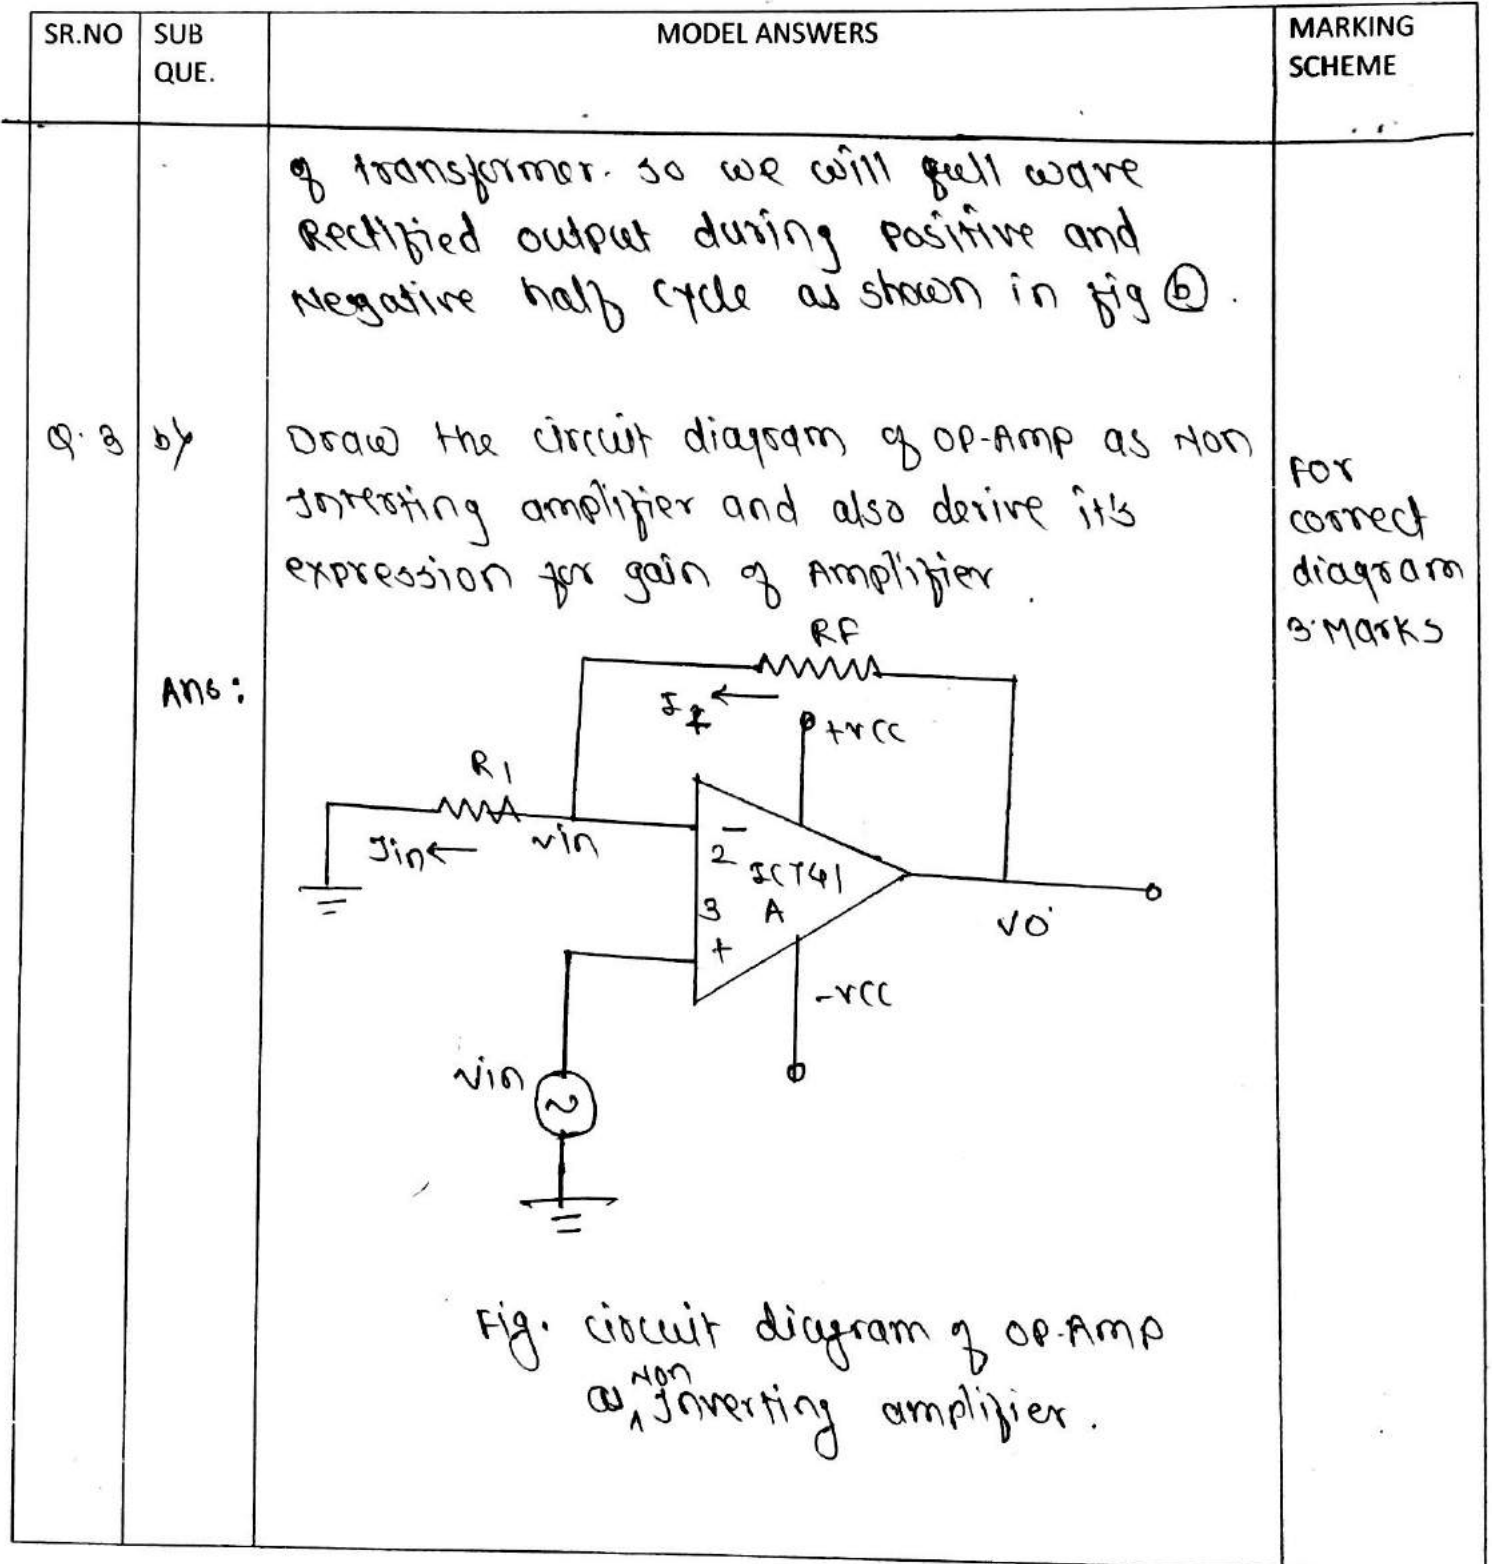 SR.NO SUB QUE. MODEL ANSWERS MARKING SCHEME
of transformer. so we will full wave
Rectified output during positive and
Negative half cycle as shown in fig (b).
Q.3 b) Draw the circuit diagram of OP-Amp as Non
Inverting amplifier and also derive it's
expression for gain of Amplifier.
For
correct
diagram
3 Marks
Ans:
RF
If
+VCC
R1
Iin
vin
2
IC741
3 A
+
VO
-VCC
Vin
Fig. circuit diagram of OP-Amp
as Non Inverting amplifier.